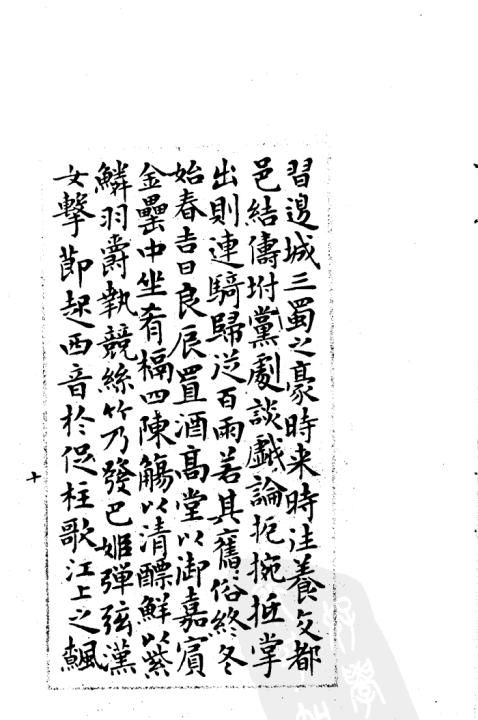 習邊城三蜀之豪時来時往養交都
邑結儔坿黨劇談戲論扼捥抵掌
出則連騎歸從百兩若其舊俗終冬
始春吉日良辰置酒髙堂以御嘉賔
金罍中坐肴槅四陳觴以清醥鮮以紫
鱗羽爵執競絲竹乃發巴姬彈弦漢
女擊節起西音於促柱歌江上之飊
十